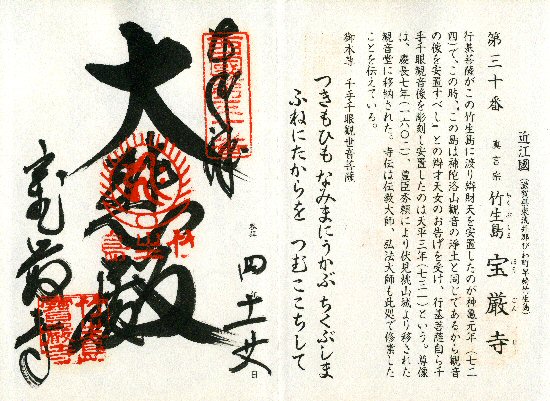 第三十番
近江國(滋賀県東浅井郡びわ町早崎竹生島)
真言宗 竹生島 宝厳寺
ちくぶしま ほう ごん じ
行基菩薩がこの竹生島に渡り辯財天を安置したのが神亀元年(七二
四)で、この時、「この島は補陀洛山観音の浄土と同じであるから観音
の像を安置すべし」との辯才天女のお告げを受け、行基菩薩自ら千
手千眼観音像を彫刻し安置したのは天平三年(七三一)という。尊像
は、慶長七年(一六〇二)、豊臣秀頼により伏見桃山城より移された
観音堂に移納された。寺伝は伝教大師、弘法大師も此処で修業した
ことを伝えている。
御本尊 千手千眼観世音菩薩
つきもひも なみまにうかぶ ちくぶしま
ふねにたからを つむここちして
奉拝
四年十一月廿日
大悲殿
宝厳寺